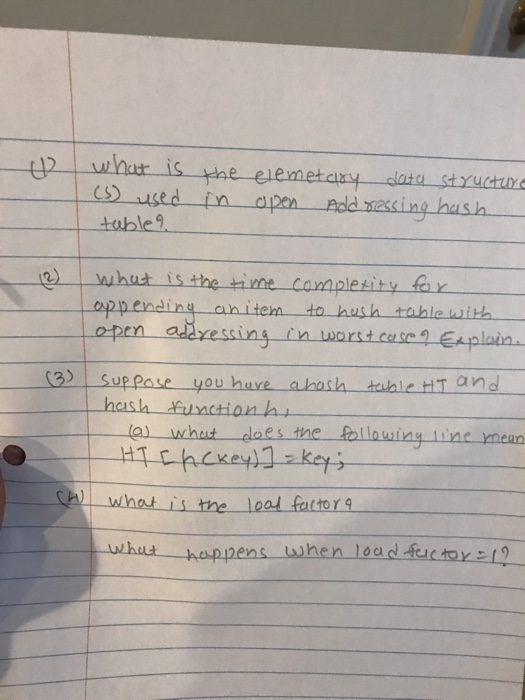 (1) what is the elemetary data structure
(s) used in open Addressing hash
table?
(2) what is the time complexity for
appending an item to hash table with
open addressing in worst case? Explain.
(3) suppose you have a hash table HT and
hash function h,
(a) what does the following line mean
HT [h(key)] = key;
(4) what is the load factor?
what happens when load factor = 1?